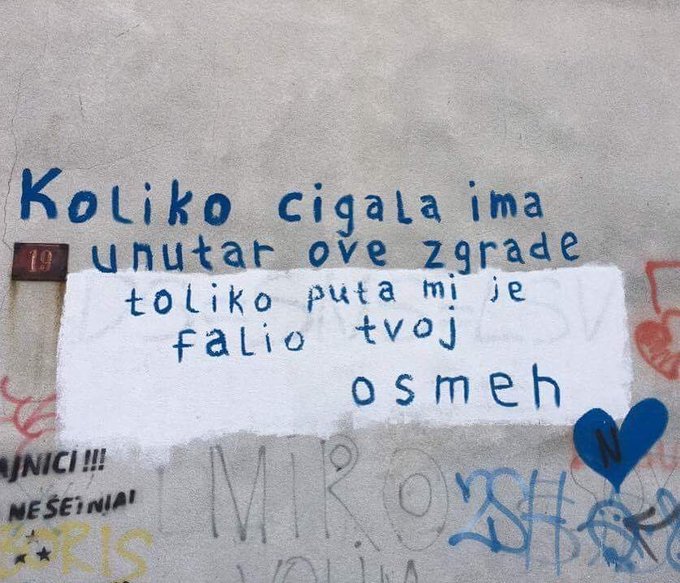 Koliko cigala ima
19
unutar ove zgrade
toliko puta mi je
falio tvoj
osmeh
N
AJNICI!!!
MIRO
BORIS
VOLIM